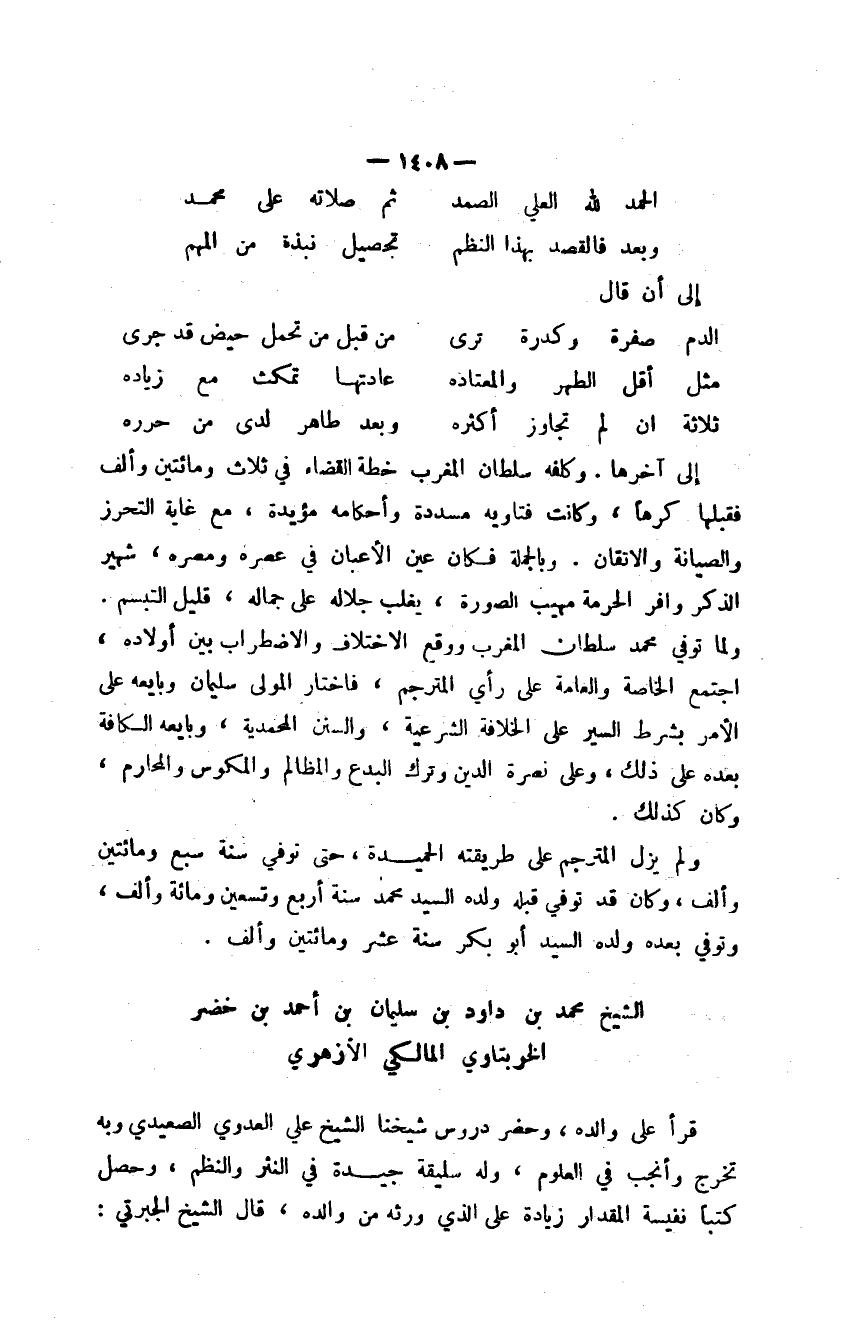 — ١٤٠٨ —
الحمد لله العلي الصمد ثم صلاته على محمد
وبعد فالقصد بهذا النظم تحصيل نبذة من المهم
إلى أن قال
الدم صفرة وكدرة ترى من قبل من تحمل حيض قد جرى
مثل أقل الطهر والمعتاده عادتها تمكث مع زياده
ثلاثة ان لم تجاوز أكثره وبعد طاهر لدى من حرره
إلى آخرها . وكلفه سلطان المغرب خطة القضاء في ثلاث ومائتين وألف
فقبلها كرهاً ، وكانت فتاويه مسددة وأحكامه مؤيدة ، مع غاية التحرز
والصيانة والاتقان . وبالجملة فكان عين الأعيان في عصره ومصره ، شهير
الذكر وافر الحرمة مهيب الصورة ، يغلب جلاله على جماله ، قليل التبسم .
ولما توفي محمد سلطان المغرب ووقع الاختلاف والاضطراب بين أولاده ،
اجتمع الخاصة والعامة على رأي المترجم ، فاختار المولى سليمان وبايعه على
الأمر بشرط السير على الخلافة الشرعية ، والسنن المحمدية ، وبايعه الكافة
بعده على ذلك ، وعلى نصرة الدين وترك البدع والمظالم والمكوس والمحارم ،
وكان كذلك .
ولم يزل المترجم على طريقته الحميدة ، حتى توفي سنة سبع ومائتين
وألف ، وكان قد توفي قبله ولده السيد محمد سنة أربع وتسعين ومائة وألف ،
وتوفي بعده ولده السيد أبو بكر سنة عشر ومائتين وألف .
الشيخ محمد بن داود بن سليمان بن أحمد بن خضر
الخربتاوي المالكي الأزهري
قرأ على والده ، وحضر دروس شيخنا الشيخ علي العدوي الصعيدي وبه
تخرج وأنجب في العلوم ، وله سليقة جيدة في النثر والنظم ، وحصل
كتباً نفيسة المقدار زيادة على الذي ورثه من والده ، قال الشيخ الجبرتي :